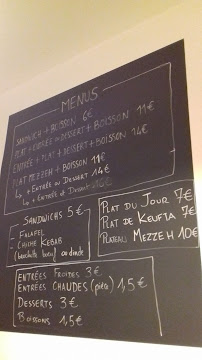 MENUS
SANDWICH + BOISSON 6€
PLAT + ENTRÉE OU DESSERT + BOISSON 11€
ENTRÉE + PLAT + DESSERT + BOISSON 14€
PLAT MEZZEH + BOISSON 11€
↳ + ENTRÉE OU DESSERT 14€
↳ + ENTRÉE + DESSERT
SANDWICHS 5€
- FALAFEL
- CHICHE KEBAB
(brochette boeuf) ou dinde
PLAT DU JOUR 7€
PLAT DE KEUFTA 7€
PLATEAU MEZZEH 10€
ENTRÉES FROIDES 3€
ENTRÉES CHAUDES (pièce) 1,5€
DESSERTS 3€
BOISSONS 1,5€